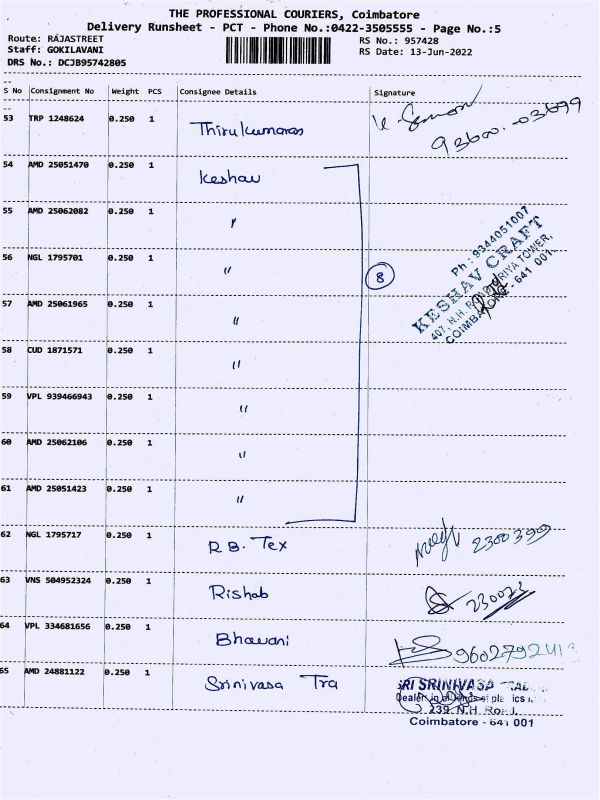 THE PROFESSIONAL COURIERS, Coimbatore
Delivery Runsheet - PCT - Phone No.:0422-3505555 - Page No.:5
Route: RAJASTREET
RS No.: 957428
Staff: GOKILAVANI
RS Date: 13-Jun-2022
DRS No.: DCJB95742805
S No Consignment No Weight PCS Consignee Details Signature
53 TRP 1248624 0.250 1 Thirukumaran
54 AMD 25051470 0.250 1 Keshav
55 AMD 25062082 0.250 1 〃
56 NGL 1795701 0.250 1 〃
8
57 AMD 25061965 0.250 1 〃
58 CUD 1871571 0.250 1 〃
59 VPL 939466943 0.250 1 〃
60 AMD 25062106 0.250 1 〃
61 AMD 25051423 0.250 1 〃
Ph : 9344051007
KESHAV CRAFT
407, N.H. TOWER,
COIMBATORE - 641 001
62 NGL 1795717 0.250 1 R.B. Tex 2300399
63 VNS 504952324 0.250 1 Rishab
64 VPL 334681656 0.250 1 Bhavani
65 AMD 24881122 0.250 1 Srinivasa Tra
SRI SRINIVASA
239, N.H. Road,
Coimbatore - 641 001